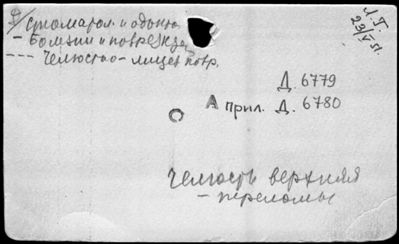 Стоматол. и одонто
- Болезни и повреж
--- Челюстно-лицев повр.
Л. Г.
23/V 51.
Д. 6779
А прил. Д. 6780
Челюсть верхняя
- переломы